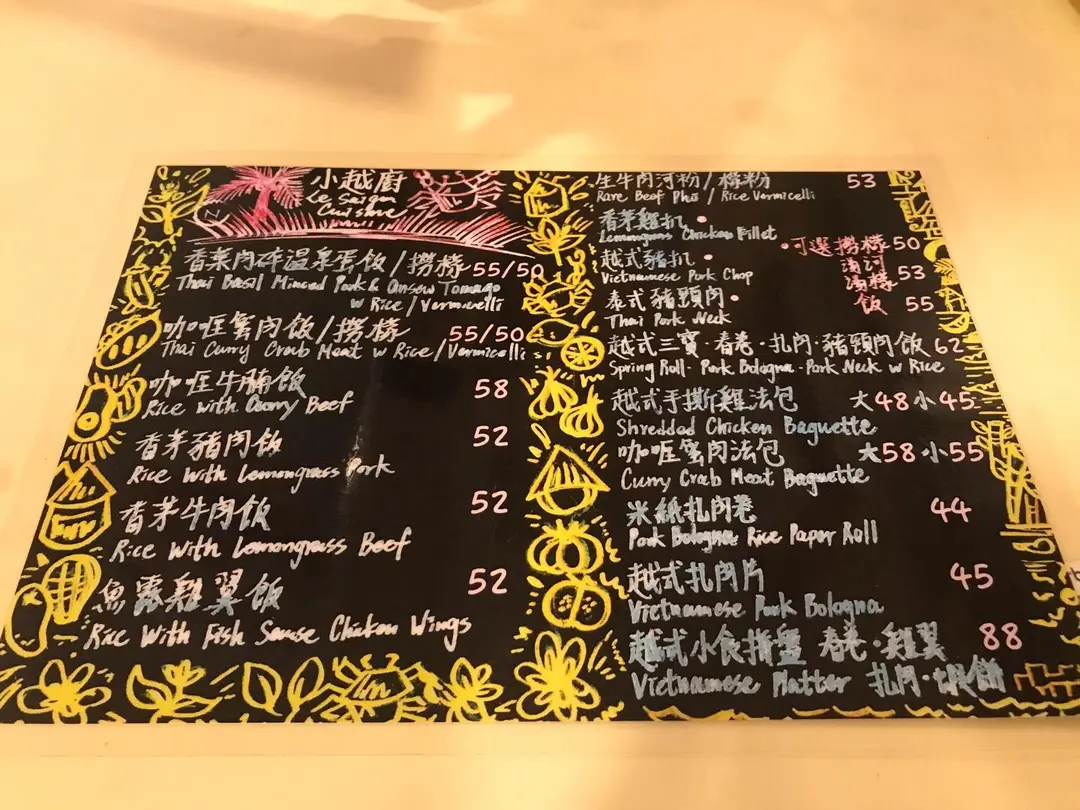 小越廚
Le Saigon
Cuisine
香菜肉碎溫泉蛋飯/撈檬 55/50
Thai Basil Minced Pork & Onsen Tomago
w Rice/Vermicelli
咖喱蟹肉飯/撈檬 55/50
Thai Curry Crab Meat w Rice/Vermicelli
咖喱牛腩飯 58
Rice with Curry Beef
香茅豬肉飯 52
Rice With Lemongrass Pork
香茅牛肉飯 52
Rice With Lemongrass Beef
魚露雞翼飯 52
Rice With Fish Sause Chicken Wings
生牛肉河粉/檬粉 53
Rare Beef Pho / Rice Vermicelli
香茅雞扒•
Lemongrass Chicken Fillet
越式豬扒•
Vietnamese Pork Chop
泰式豬頸肉•
Thai Pork Neck
•可選撈檬 50
湯河
湯檬 53
飯 55
越式三寶·春卷·扎肉·豬頸肉飯 62
Spring Roll· Pork Bologna· Pork Neck w Rice
越式手撕雞法包 大48小45
Shredded Chicken Baguette
咖喱蟹肉法包 大58小55
Curry Crab Meat Baguette
米紙扎肉卷 44
Pork Bologna Rice Paper Roll
越式扎肉片 45
Vietnamese Pork Bologna
越式小食拼盤 春卷·雞翼 88
Vietnamese Platter 扎肉·蝦餅